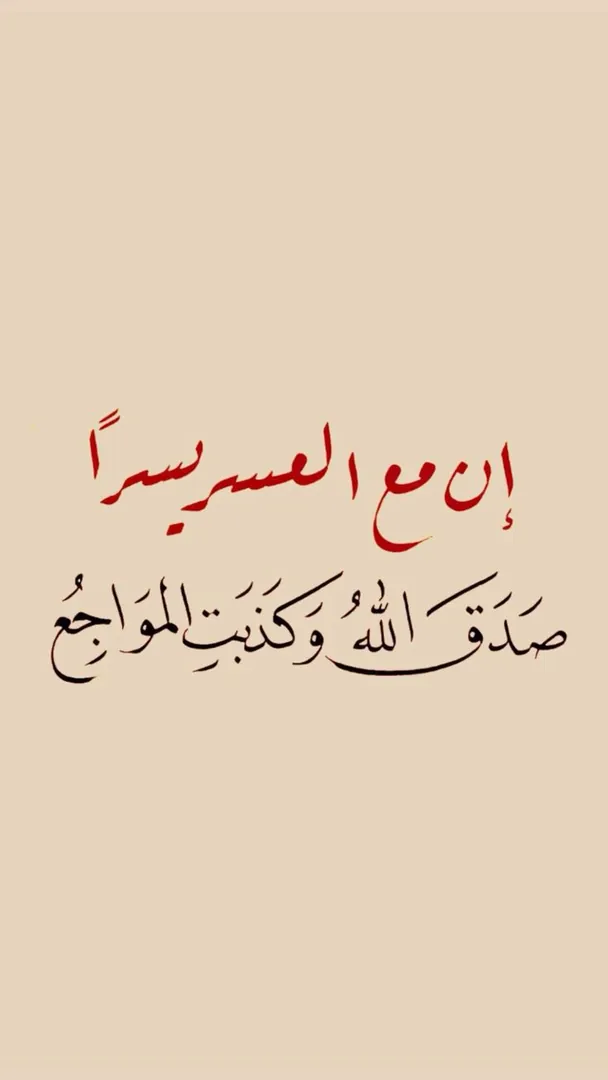 إن مع العسر يسراً
صَدَقَ اللهُ وَكَذَبَتِ المَوَاجِعُ